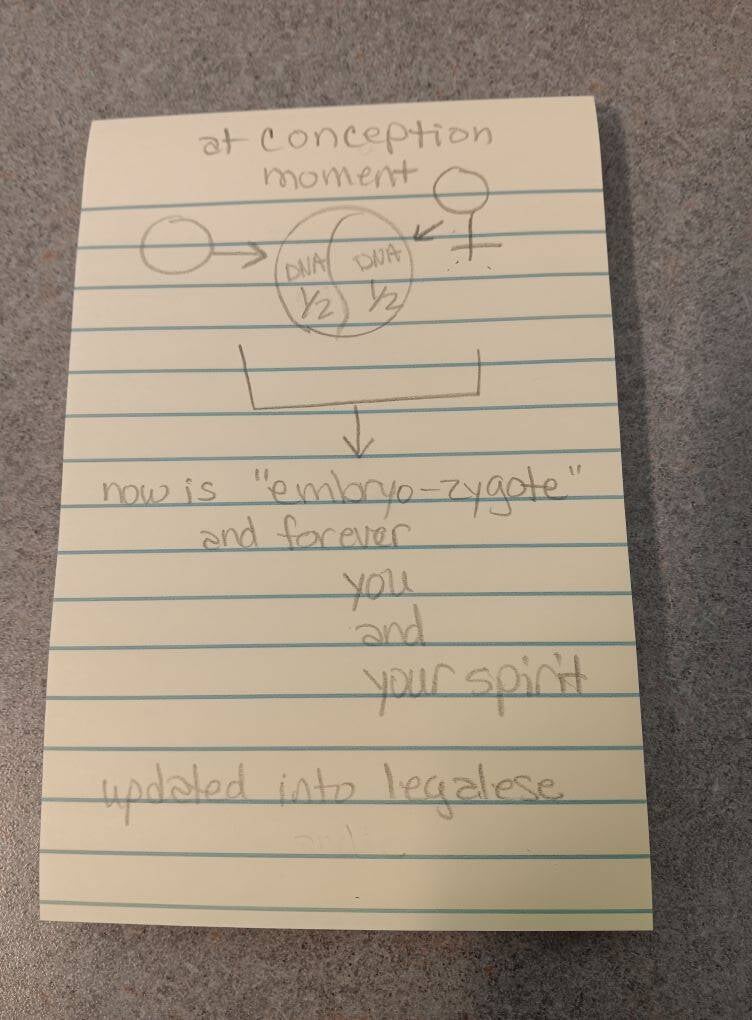 at conception
moment
DNA DNA
1/2 1/2
now is "embryo-zygote"
and forever
you
and
your spirit
updated into legalese